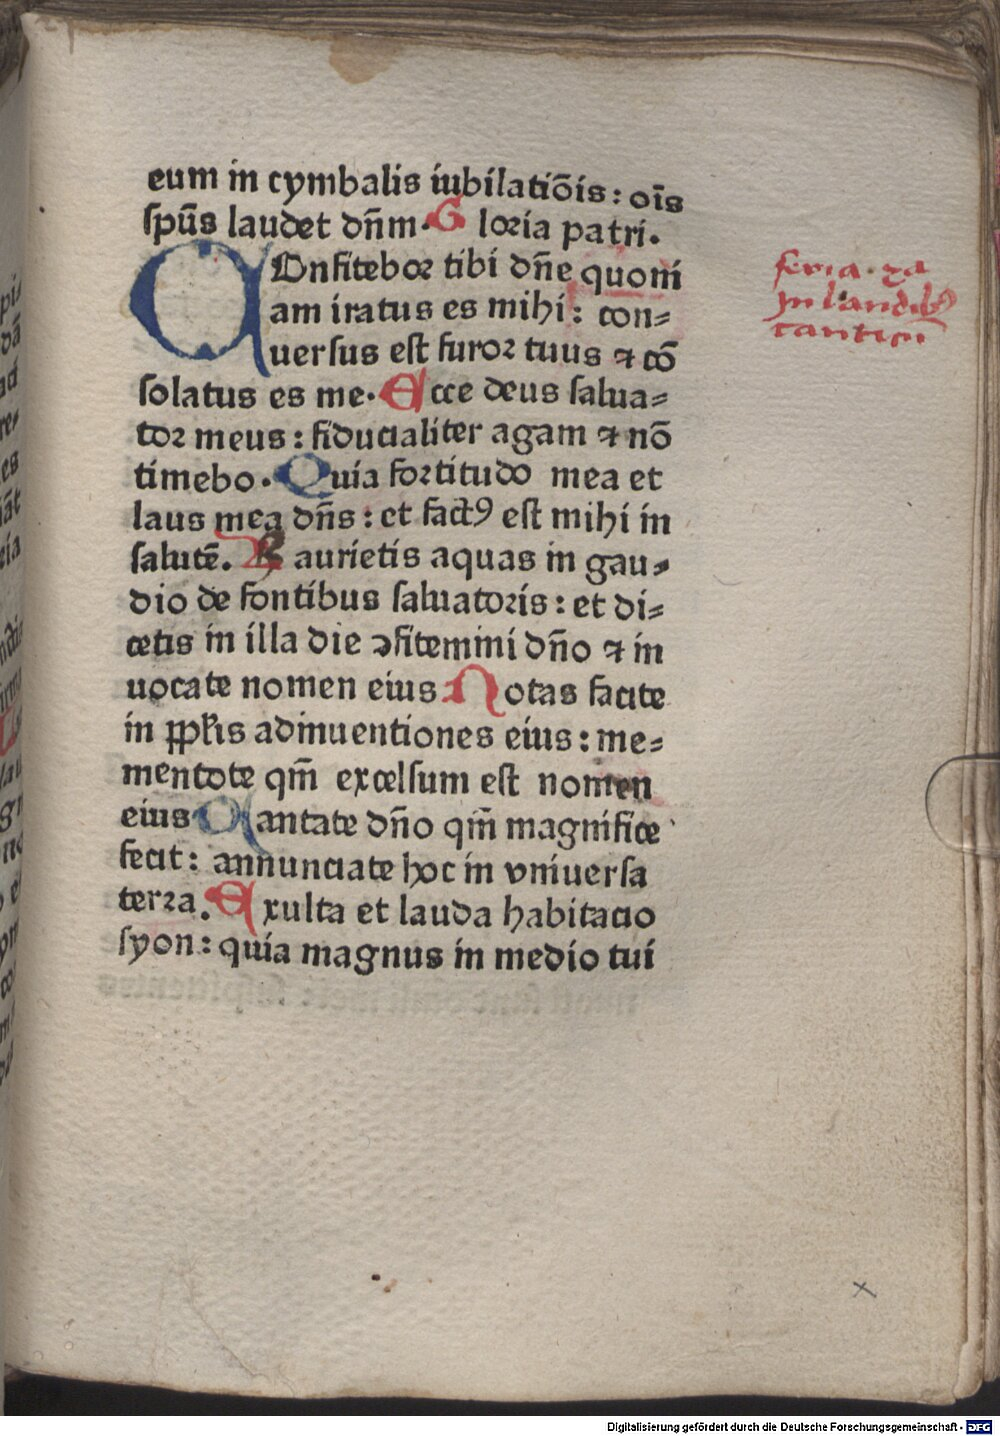 eum in cymbalis iubilatiōis: oīs
spūs laudet dn̄m. Gloria patri.
COnfitebor tibi dn̄e quoni
am iratus es mihi: con=
uersus est furor tuus ⁊ cō
solatus es me. Ecce deus salua=
tor meus: fiducialiter agam ⁊ nō
timebo. Quia fortitudo mea et
laus mea dn̄s: et factꝰ est mihi in
salutē. Haurietis aquas in gau=
dio de fontibus saluatoris: et di=
cetis in illa die ꝯfitemini dn̄o ⁊ in
uocate nomen eius. Notas facite
in pp̄lis adinuentiones eius: me=
mentote qm̄ excelsum est nomen
eius. Cantate dn̄o qm̄ magnifice
fecit: annunciate hoc in vniuersa
terra. Exulta et lauda habitacio
syon: quia magnus in medio tui
feria · 2a
In laudibꝰ
canticū
x
Digitalisierung gefördert durch die Deutsche Forschungsgemeinschaft - DFG